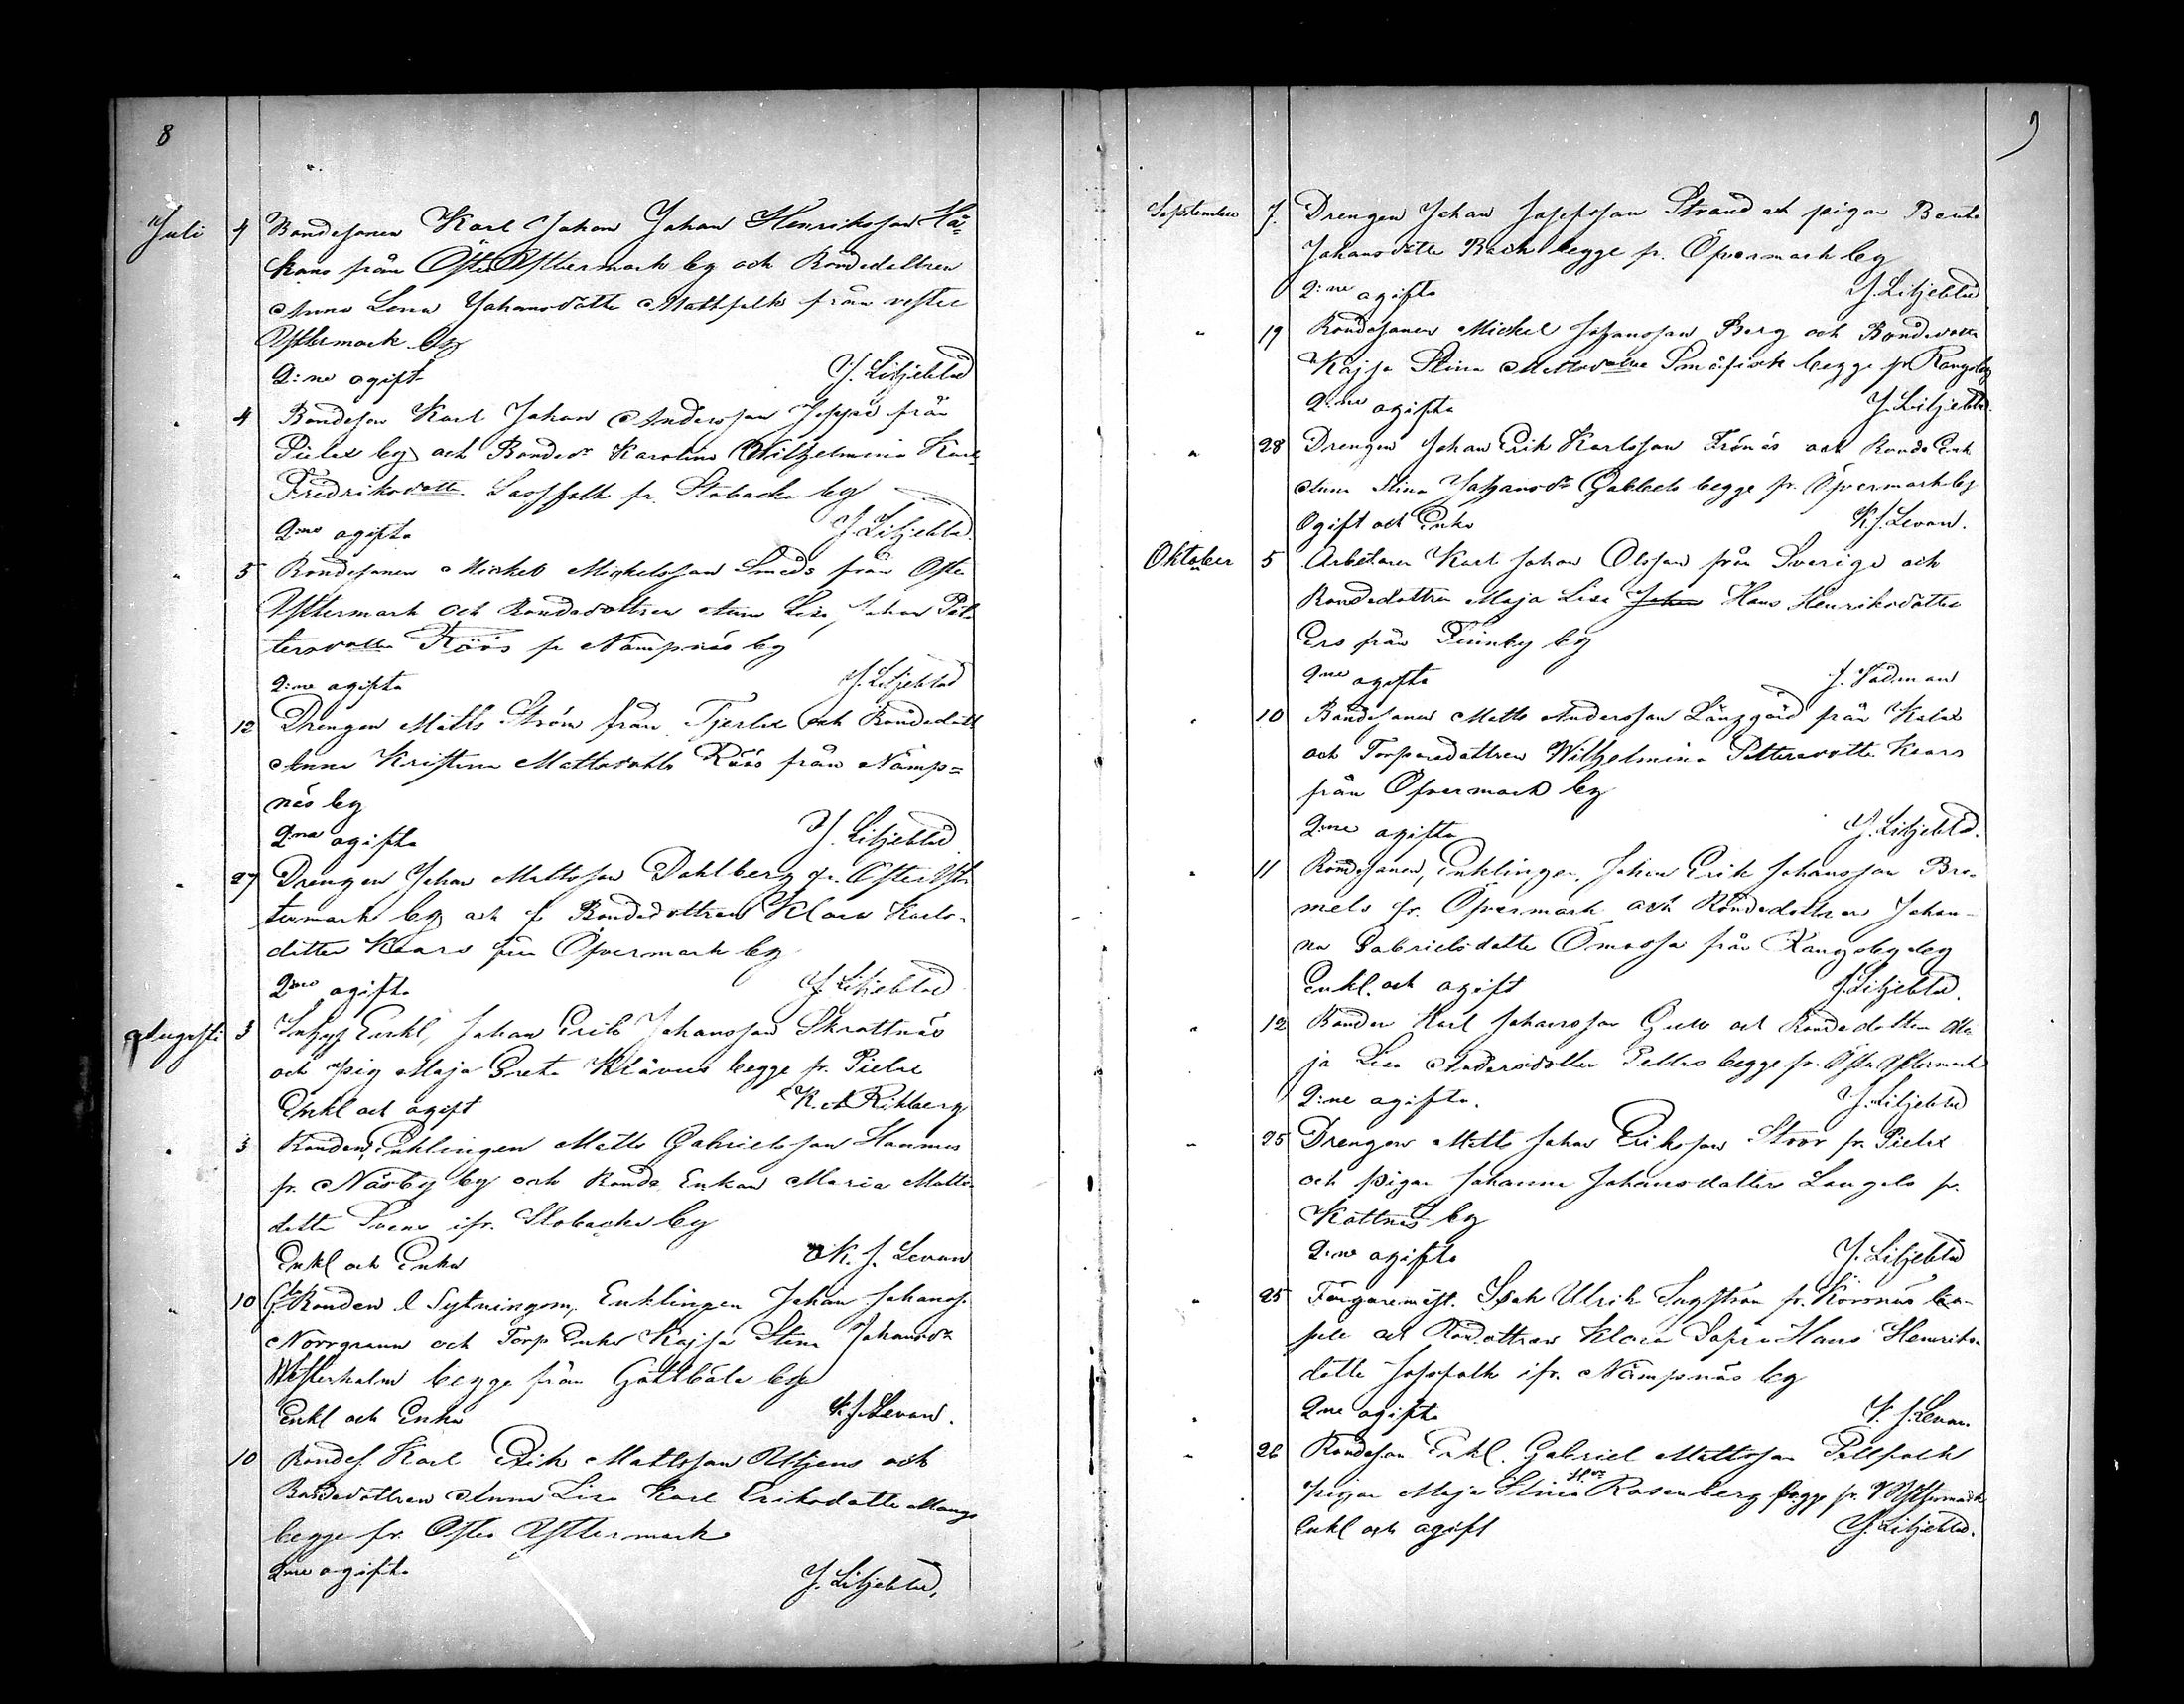 8
Juli 4 Bondesonen Karl Johan Johan Henriksson Hå=
kans från Öster Yttermark by och Bondedottren
Anna Lena Johansdotter Mattfolk från vester
Yttermark by
2:ne ogift J. Liljeblad
" 4 Bondeson Karl Johan Andersson Jeppe från
Pielax by och Bondedr Karolina Wilhelmina Karl
Fredriksdotter Lassfolk fr. Stobacka by
2:ne ogifta J. Liljeblad.
" 5 Bondesonen Mickel Mickelsson Smeds från Öster
Yttermark och Bondedottren Anna Lisa Johan Pet=
tersdotter Röös fr Nämpnäs by
2:ne ogifta J. Liljeblad
" 12 Drengen Matts Ström från Tjerlax och Bondedott
Anna Kristina Mattsdotter Röös från Nämp=
näs by
2:ne ogifta J. Liljeblad
" 27 Drengen Johan Mattsson Dahlberg fr. Öster Yt-
termark by och Bondedottren Klara Karls-
dotter Knars från Öfvermark by
2:ne ogifta J. Liljeblad
Augusti 3 Inhys Enkl, Johan Erik Johansson Skrattnäs
och pig Maja Greta Klåvus begge fr. Pielax
Enkl och ogift K. A. Rihlberg
" 3 Bonden, Enklingen Matts Gabrielsson Hannus
fr. Näsby by och Bonde Enkan Maria Matts-
dotter Svens ifr. Stobacka by
Enkl och Enka K. J. Levan
" 10 Bonden l Sytningsm. Enklingen Johan Johanss.
Norrgrann och Torp Enka Kajsa Stina Johansdr
Westerholm begge från Gottböle by
Enkl och Enka K. J. Levan.
10 Bondes Karl Erik Mattsson Yttjens och
Bondedottren Anna Lisa Karl Eriksdotter Mangs
begge fr. Öster Yttermark
2:ne ogifta J. Liljeblad.
9
September 7. Drengen Johan Josefsson Strand och pigan Beata
Johansdotter Back begge fr. Öfvermark by
2:ne ogifta J. Liljeblad
" 19 Bondesonen Mickel Johansson Berg och Bondedotter
Kajsa Stina Mattsdotter Småfisk begge fr Rangsby
2:ne ogifta J. Liljeblad.
" 28 Drengen Johan Erik Karlsson Frönäs och Bonde Enk
Anna Stina Johansdr Gabbels begge fr. Öfvermark by
Ogift och Enka K. J. Levan.
Oktober 5 Arbetaren Karl Johan Olsson från Sverige och
Bondedottren Maja Lisa Johan Hans Henriksdotter
Ers från Finnby by
2:ne ogifta J. Södman
" 10 Bondesonen Matts Andersson Långgård från Kalax
och Torparedottren Wilhelmina Pettersdotter Knars
från Öfvermark by
2:ne ogifta J. Liljeblad.
" 11 Bondesonen, Enklingen, Johan Erik Johansson Bre-
mels fr. Öfvermark och Bondedottren Johan-
na Gabrielsdotter Ömossa från Rangsby by
Enkl. och ogift J. Liljeblad.
" 12 Bonden Karl Johansson och Bondedotter Ma
ja Lisa Andersdotter Pellas begge fr. Öster Yttermark
2:ne ogifta. J. Liljeblad
" 25 Drengen Matts Johan Eriksson Stoor fr. Pielax
och pigan Johanna Johansdotter Langels fr.
Kåttnäs by
2:ne ogifta J. Liljeblad
" 25 Färgaremäst. Isak Ulrik Sugström fr. Korsnäs ka-
pell och Bondottren Klara Sofia Hans Henriks
dotter Josfolk ifr. Nämpnäs by
" 2:ne ogifta K. J. Levan.
" 26 Bondeson Enkl. Gabriel Mattsson Pellfolk
pigan Maja Stina Rosenberg begge fr. Yttermark
Enkl och ogift J. Liljeblad.